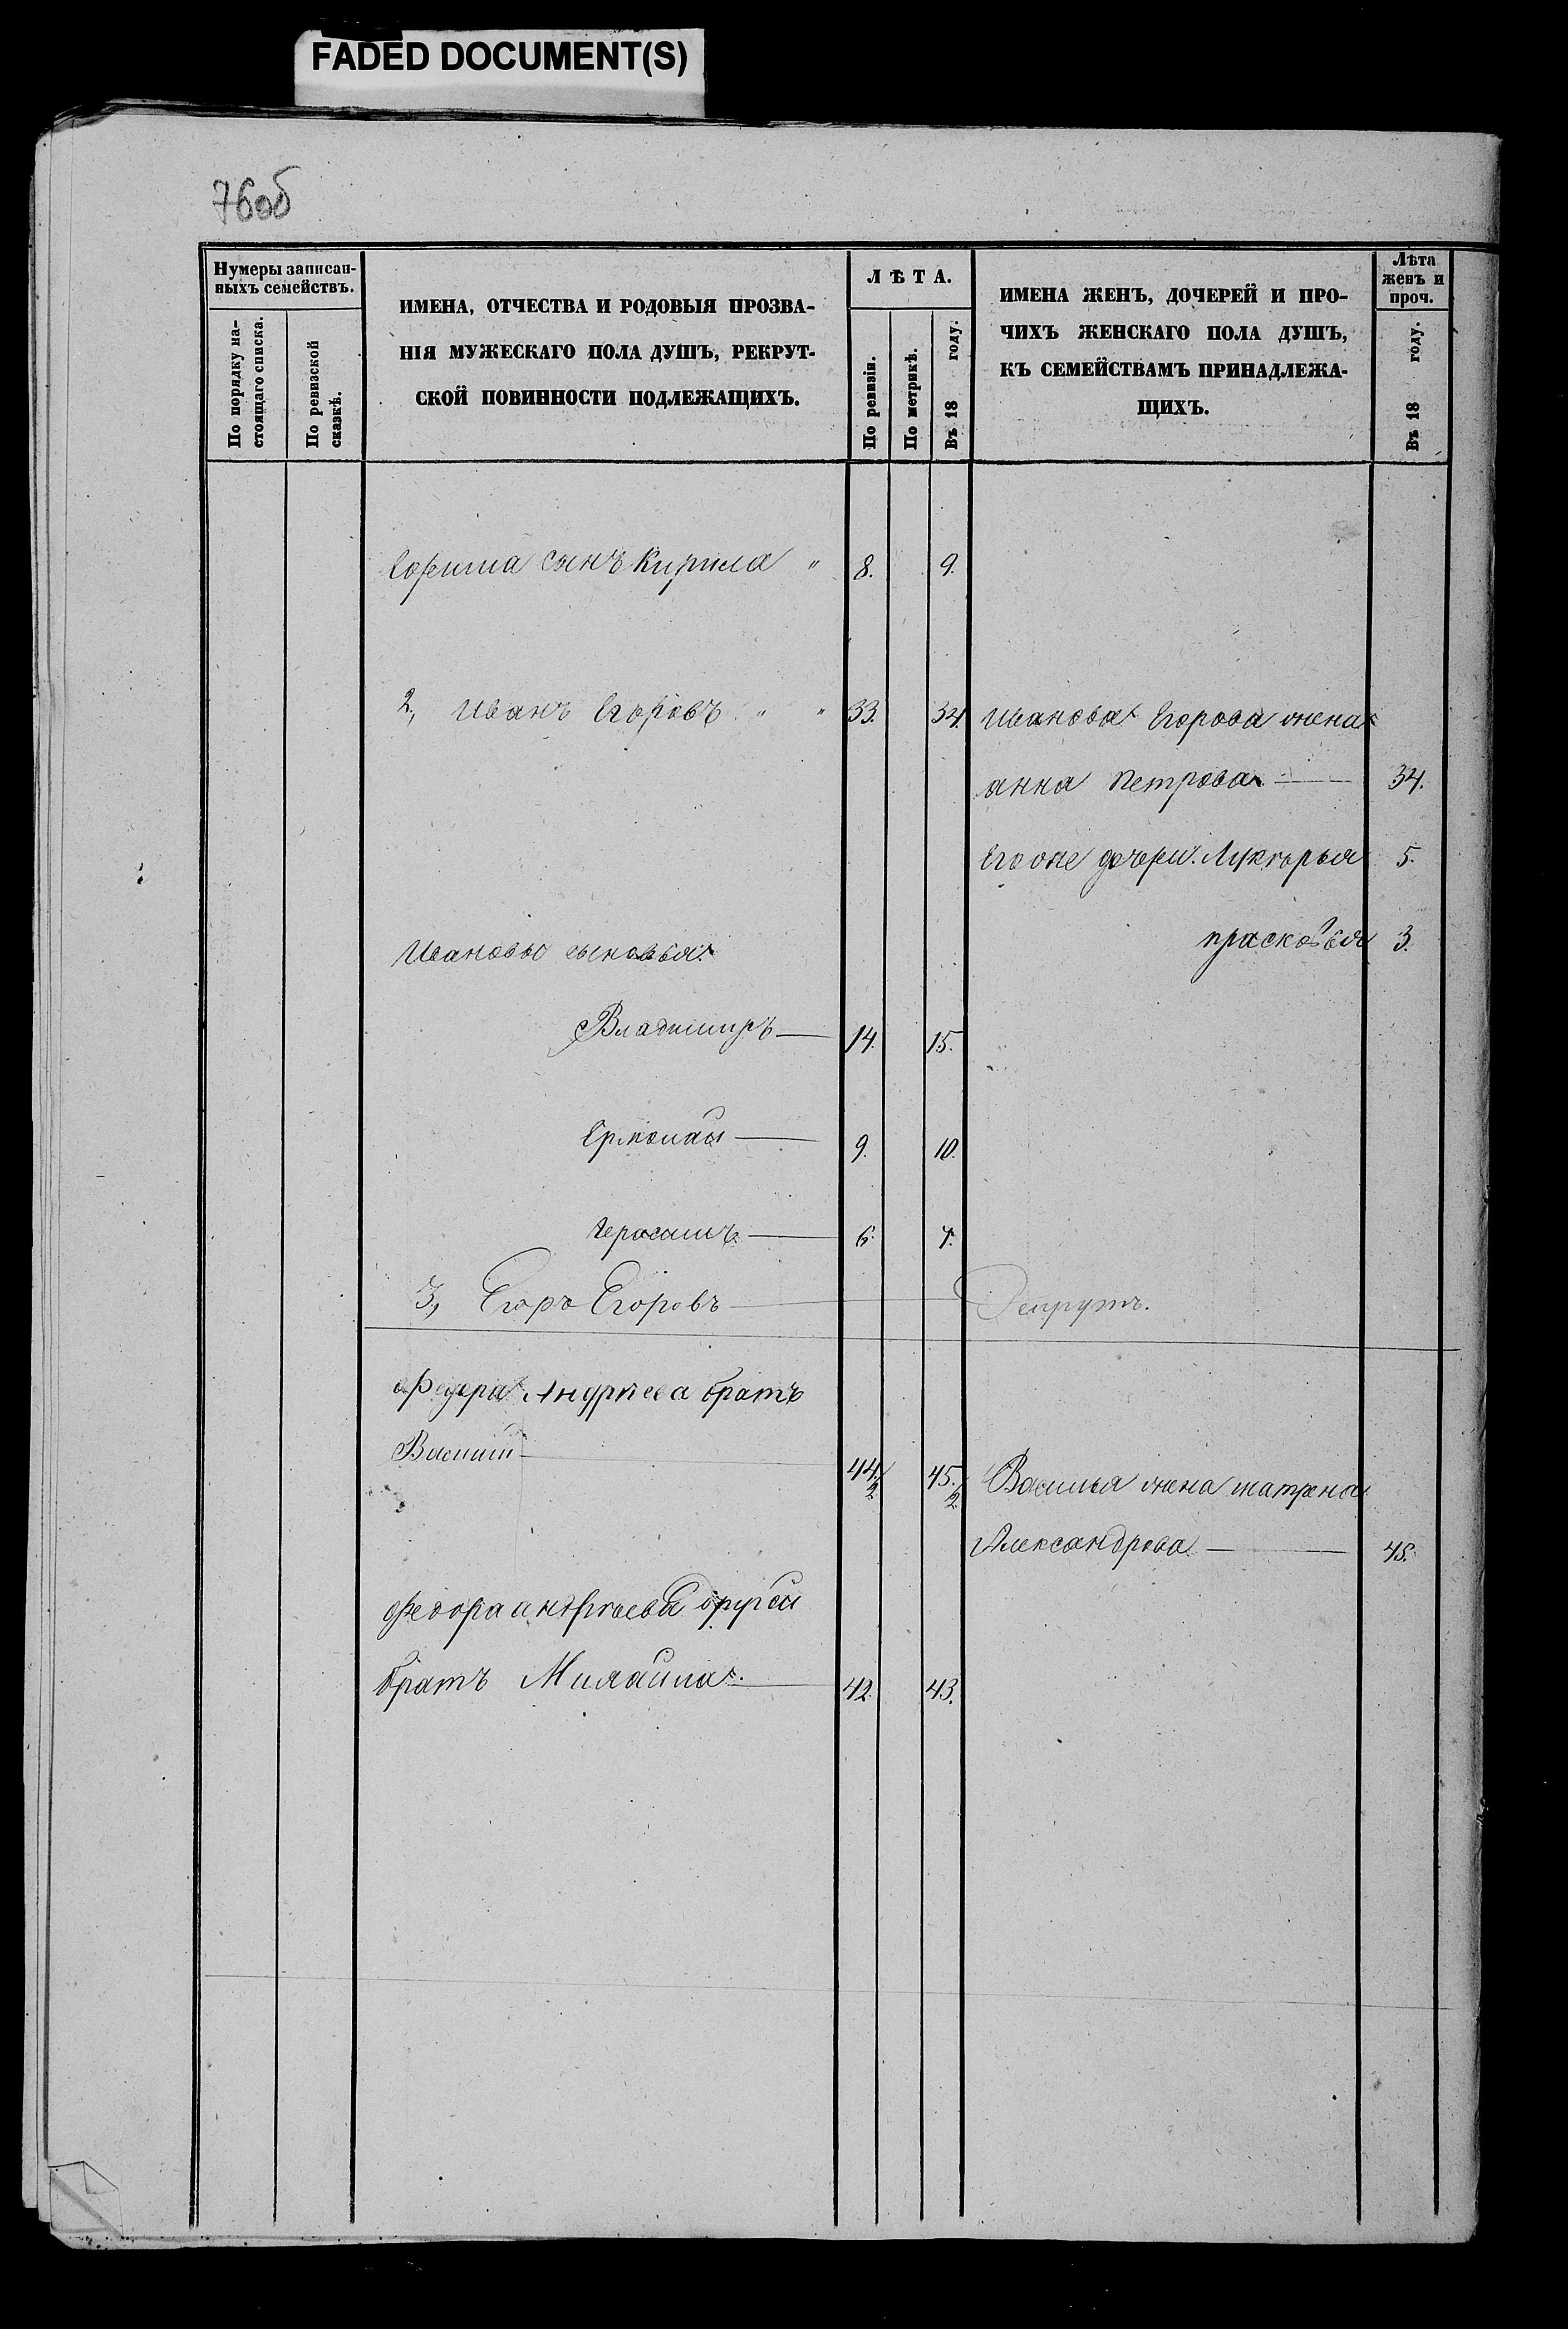 FADED DOCUMENT(S)
76об
Нумеры записан-
ныхъ семействъ.
По порядку на-
стоящаго списка.
По ревизской
сказкѣ.
ИМЕНА, ОТЧЕСТВА И РОДОВЫЯ ПРОЗВА-
НІЯ МУЖЕСКАГО ПОЛА ДУШЪ, РЕКРУТ-
СКОЙ ПОВИННОСТИ ПОДЛЕЖАЩИХЪ.
ЛѢТА.
По ревизіи.
По метрикѣ.
Въ 18 году.
ИМЕНА ЖЕНЪ, ДОЧЕРЕЙ И ПРО-
ЧИХЪ ЖЕНСКАГО ПОЛА ДУШЪ,
КЪ СЕМЕЙСТВАМЪ ПРИНАДЛЕЖА-
ЩИХЪ.
Лѣта
женъ и
проч.
Въ 18 году.
сынъ Кирила " 8. 9.
2, Иванъ Егоровъ " " 33. 34. Иванова Егорова жена
анна Петрова 34.
Его же дочери. Лукерья 5.
прасковья 3.
Ивановы сыновья
Владимиръ 14. 15.
Ермолай 9. 10.
Герасимъ 6. 7.
3, Егоръ Егоровъ Рекрутъ.
Федора Андреева братъ
Василий 44/2 45./2 Василья жена матрена
Александрова 45.
Федора андреева другой
братъ Михайла 42. 43.